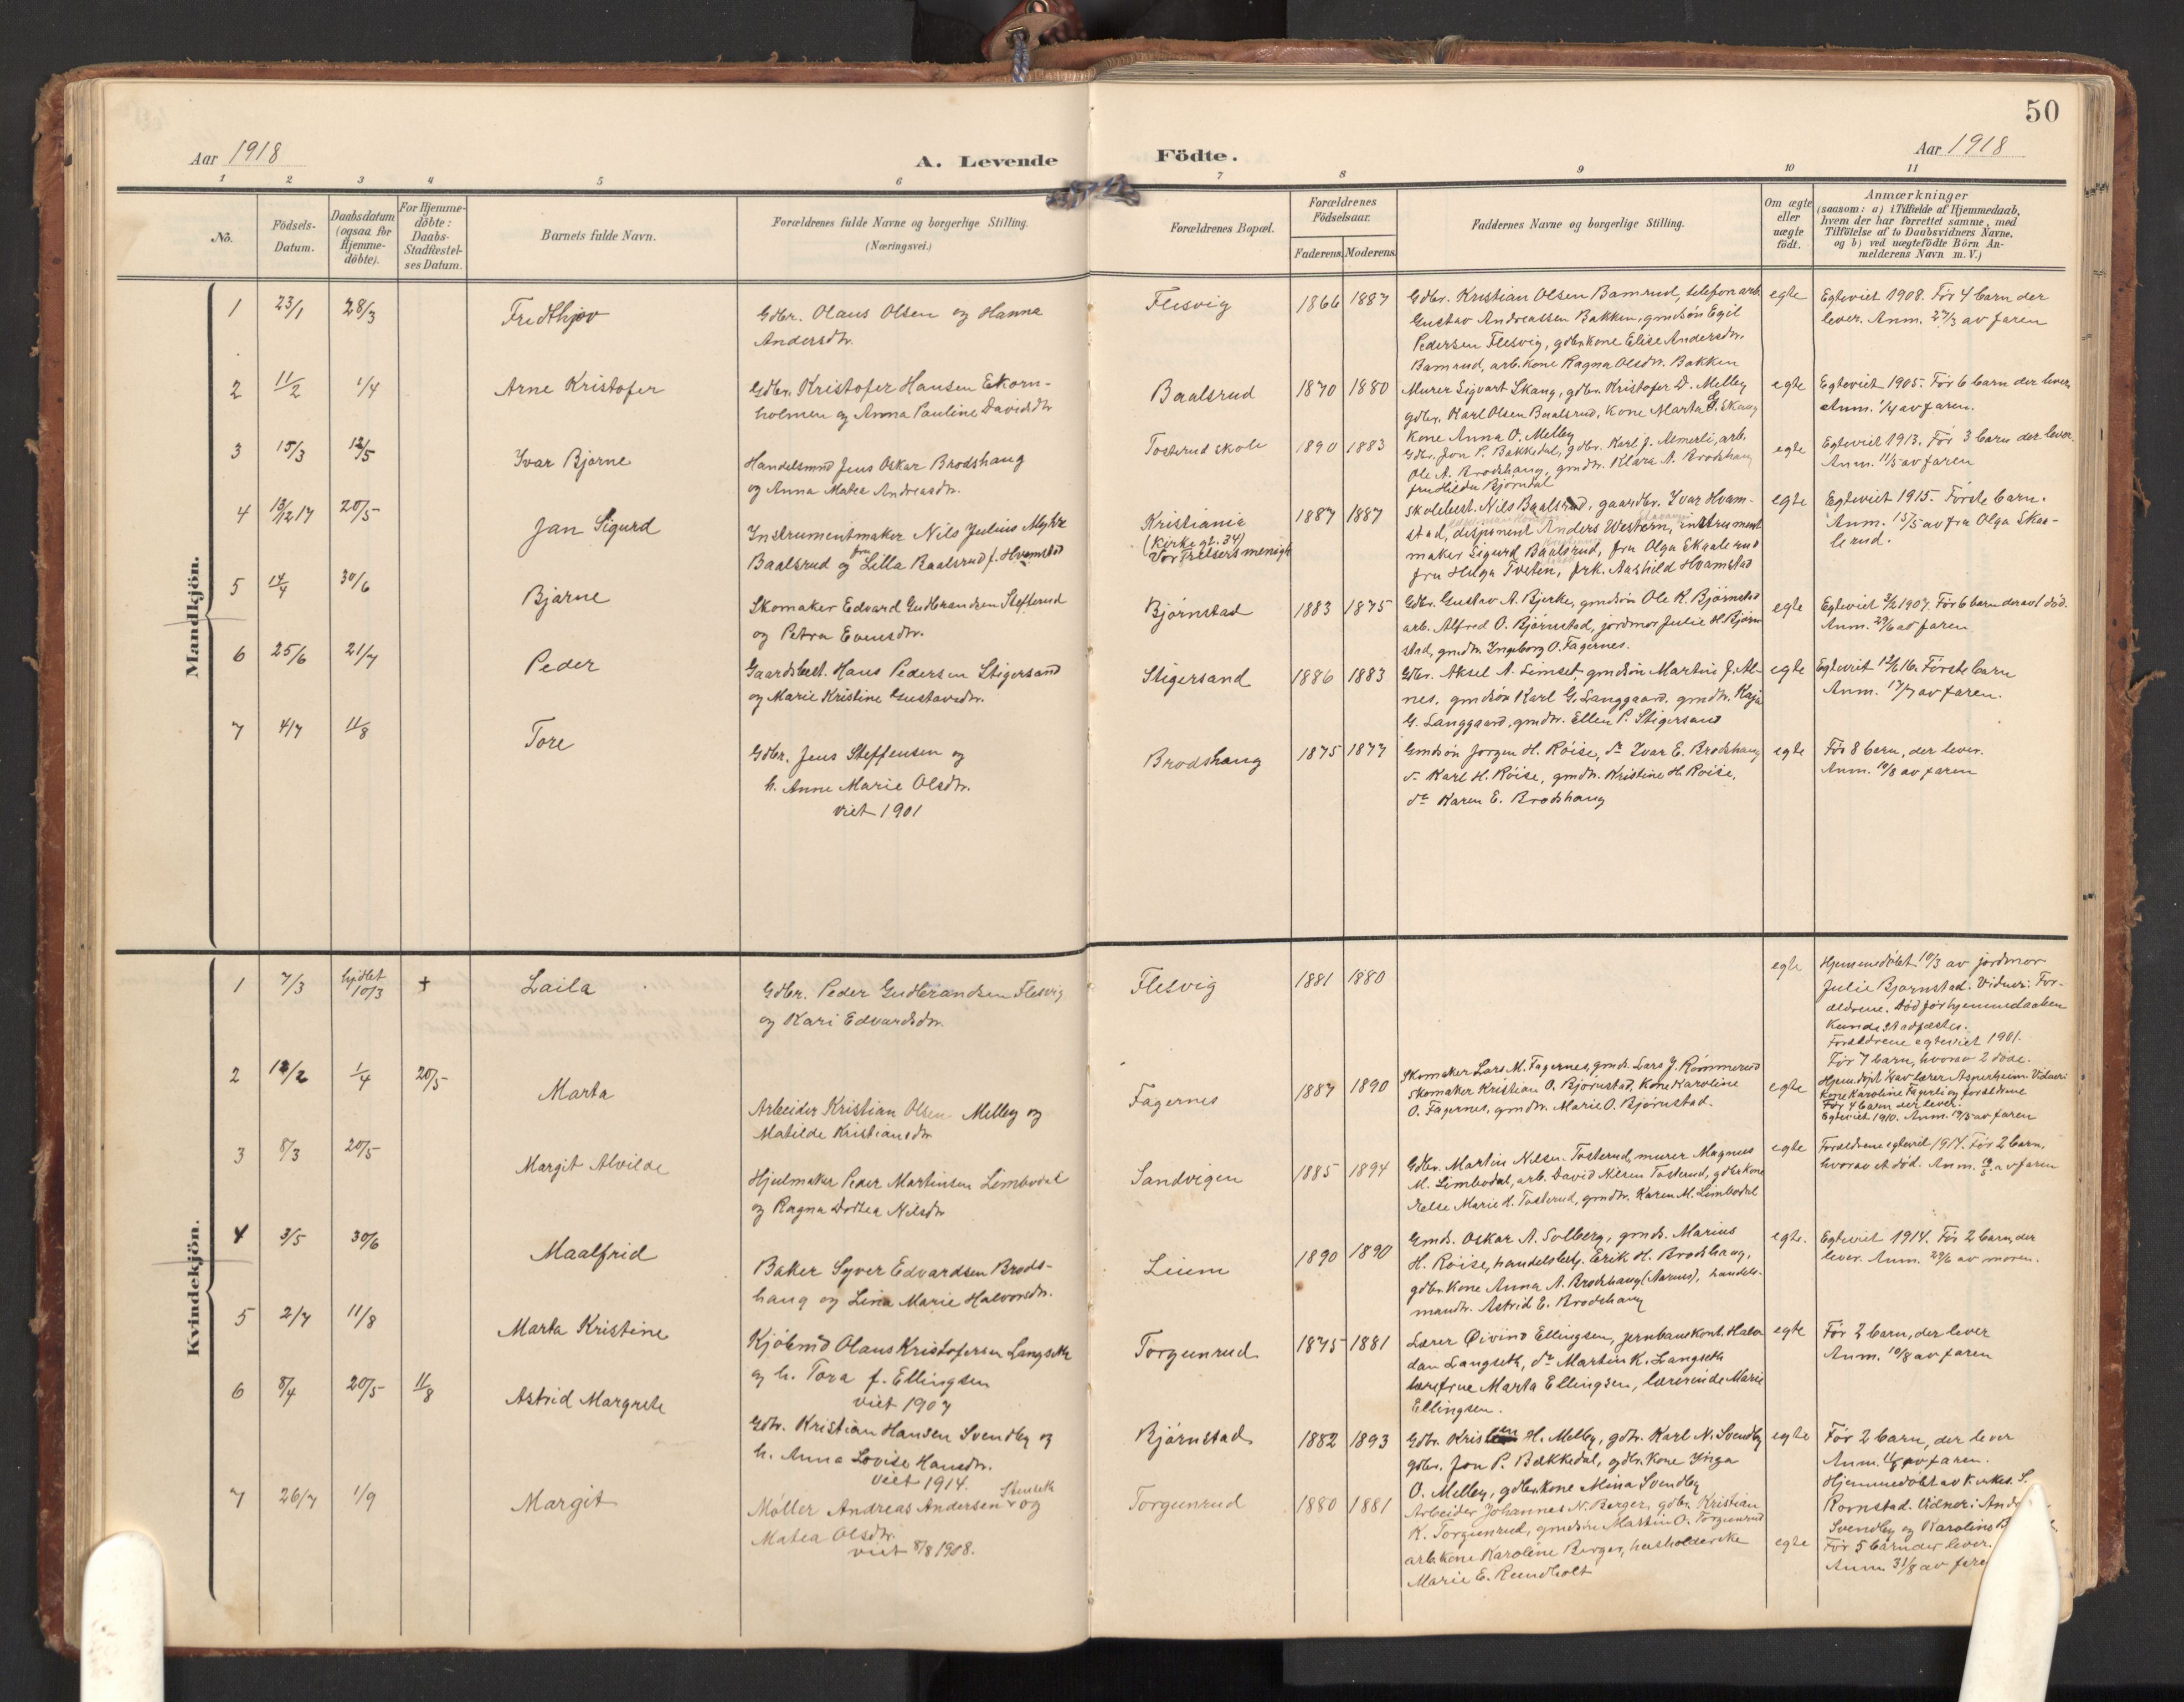 50
Aar 1918
A. Levende Födte.
Aar 1918
1 2 3 4 5 6 7 8 9 10 11
No.
Födsels-Datum.
Daabsdatum (ogsaa for Hjemme-döbte).
For Hjemme-döbte: Daabs-Stadfæstel-ses Datum.
Barnets fulde Navn.
Forældrenes fulde Navne og borgerlige Stilling. (Næringsvei.)
Forældrenes Bopæl.
Forældrenes Födselsaar.
Faderens. Moderens.
Faddernes Navne og borgerlige Stilling.
Om ægte eller uægte födt.
Anmærkninger
(saasom: a) i Tilfælde af Hjemmedaab, hvem der har forrettet samme, med Tilföielse af to Daabsvidners Navne, og b) ved uægtefödte Börn An-melderens Navn m. V.)
Mandkjön.
1 23/1 28/3 Fredthjov
Gdbr. Olaus Olsen og Hanna
Andersdtr.
Flesvig 1866 1887
Gdbr. Kristian Olsen Bamrud, telefonarb.
Gustav Andreassen Bakken, gmdsøn Egil
Pedersen Flesvig, gdbrkone Elise Andersdtr.
Bamrud, arb.kone Ragna Olsdtr. Bakken
egte
Egteviet 1908. Før 4 barn der
lever. Anm. 27/3 av faren
2 11/2 1/4 Arne Kristofer
Gdbr. Kristofer Hansen Ekorn-
holmen og Anna Pauline Davidsdtr
Baalsrud 1870 1880
Murer Sigvart Skaug, gdbr. Kristofer D. Melby
gdbr. Karl Olsen Baalsrud, kone Marta G. Skaug
kone Anna O. Melby
egte
Egteviet 1905. Før 6 barn der lever.
Anm. 1/4 av faren.
3 15/3 12/5 Ivar Bjarne
Handelsmnd Jens Oskar Brodshaug
og Anna Matea Andreasdtr.
Tosterud skole 1890 1883
Gdbr. Jon P. Bakkedal, gdbr. Karl J. Almerli, arb.
Ole A. Brodshaug, gmdtr. Klara A. Brodshaug
fru Hilda Bjørndal
egte
Egteviet 1913. Før 3 barn der lever.
Anm. 11/5 av faren
4 13/12 17 20/5 Jan Sigurd
Instrumentmaker Nils Julius Myhre
Baalsrud og fru Lilla Baalsrud f. Hvamstad
Kristiania
(Kirkegt. 34)
Vor Frelsers menigh
1887 1887
Skolebest. Nils Baalsrud, gaardbr. Ivar Hvam-
stad, disponent Anders Western, instrument
maker Sigurd Baalsrud, fru Olga Skaalerud
fru Helga Tveten, frk. Aashild Hvamstad
egte
Egteviet 1915. Første barn.
Anm. 15/5 av fru Olga Skaa-
lerud.
5 14/4 30/6 Bjarne
Skomaker Edvard Gudbrandsen Stefferud
og Petra Evensdtr.
Bjørnstad 1883 1875
Gdbr. Gustav A. Bjerke, gmdsøn Ole K. Bjørnstad
arb. Alfred O. Bjørnstad, jordmor Julie H. Bjørn
stad, gmdtr. Ingeborg O. Fagernes.
egte
Egteviet 3/2 1907. Før 6 barn derav 1 død.
Anm. 29/6 av faren
6 25/6 21/7 Peder
Gaardsbest. Hans Pedersen Stigersand
og Marie Kristine Gustavsdtr.
Stigersand 1886 1883
Gdbr. Aksel A. Limset, gmdsøn Martin J. Al-
nes, gmdsøn Karl G. Langgaard, gmdtr. Kaja
G. Langgaard, gmdtr. Ellen P. Stigersand
egte
Egteviet 12/6 16. Første barn
Anm. 17/7 av faren.
7 4/7 11/8 Tore
Gdbr. Jens Steffensen og
h. Anne Marie Olsdtr.
viet 1901
Brodshaug 1875 1877
Gmdsøn Jørgen H. Röise, do Ivar E. Brodshaug
do Karl H. Röise, gmdtr. Kristine H. Röise,
do Karen E. Brodshaug
egte
Før 8 barn, der lever.
Anm. 10/8 av faren
Kvindekjön.
1 7/3 hjdbt 10/3 + Laila
Gdbr. Peder Gudbrandsen Flesvig
og Kari Edvardsdtr.
Flesvig 1881 1880
egte
Hjemmedøbt 10/3 av jordmor
Julie Bjørnstad. Vidner: For-
ældrene. Død før hjemmedaaben
kunde stadfæstes.
Forældrene egteviet 1901.
Før 7 barn, hvorav 2 døde.
2 12/2 1/4 20/5 Marta
Arbeider Kristian Olsen Melby og
Matilde Kristiansdtr
Fagernes 1887 1890
Skomaker Lars M. Fagernes, gmds. Lars J. Rømmerud
Skomaker Kristian O. Bjørnstad, Kone Karoline
O. Fagernes, gmdtr. Marie O. Bjørnstad.
egte
Hjemdøpt 1/4 av lærer Asperheim. Vidner:
Kone Karoline Fagerli og forældrene
Før 4 barn der lever.
Egteviet 1910. Anm. 19/5 av faren
3 8/3 20/5 Margit Alvilde
Hjulmaker Peder Martinsen Limbodal
og Ragna Dortea Nilsdtr
Sandvigen 1885 1894
Gdbr. Martin Nilsen Tosterud, murer Magnus
M. Limbodal, arb. David Nilsen Tosterud, gdbrkone
Helse Marie H. Tosterud, gmdtr. Karen M. Limbodal
egte
Forældrene egteviet 1917. Før 2 barn,
hvorav et død. Anm. 19/5 av faren
4 3/5 30/6 Maalfrid
Baker Syver Edvardsen Brods-
haug og Lina Marie Halvorsdtr.
Lium 1890 1890
Gmds. Oskar A. Solberg, gmds. Marius
H. Röise, handelsbetj. Erik H. Brodshaug,
gdbr.kone Anna A. Brodshaug (Aarnes), handels-
mandtr. Astrid E. Brodshaug
egte.
Egteviet 1914. Før 2 barn, der
lever. Anm. 29/6 av moren.
5 2/7 11/8 Marta Kristine
Kjöbmd Olaus Kristofersen Langseth
og h. Tora f. Ellingsen
viet 1907
Torgunrud 1875 1881
Lærer Øivind Ellingsen, jernbanekont. Halv-
dan Langseth, do Martin K. Langseth
lærerfrue Marta Ellingsen, lærerinde Marie
Ellingsen.
egte
Før 2 barn, der lever
Anm. 10/8 av faren
6 8/4 20/5 11/8 Astrid Margrete
Gdbr. Kristian Hansen Svendby og
h. Anna Lovise Hansdtr.
viet 1914.
Bjørnstad 1882 1893
Gdbr. Kristian H. Melby, gdbr. Karl N. Svendby
gdbr. Jon P. Bakkedal, gdbr. kone Inga
O. Melby, gdbrkone Mina Svendby
egte
Før 2 barn, der lever
Anm. av faren.
Hjemmedøbt av Kirkes. S.
Rornstad. Vidner: And
Svendby og Karoline
7 26/7 1/9 Margit
Møller Andreas Andersen Stenseth og
Matea Olsdtr.
viet 8/8 1908.
Torgunrud 1880 1881
Arbeider Johannes N. Berger, gdbr. Kristian
K. Torgunrud, gmdsøn Martin O. Torgunrud
arb.kone Karoline Berger, husholderske
Marie E. Rundholt
egte
Før 5 barn der lever.
Anm. 31/8 av fare